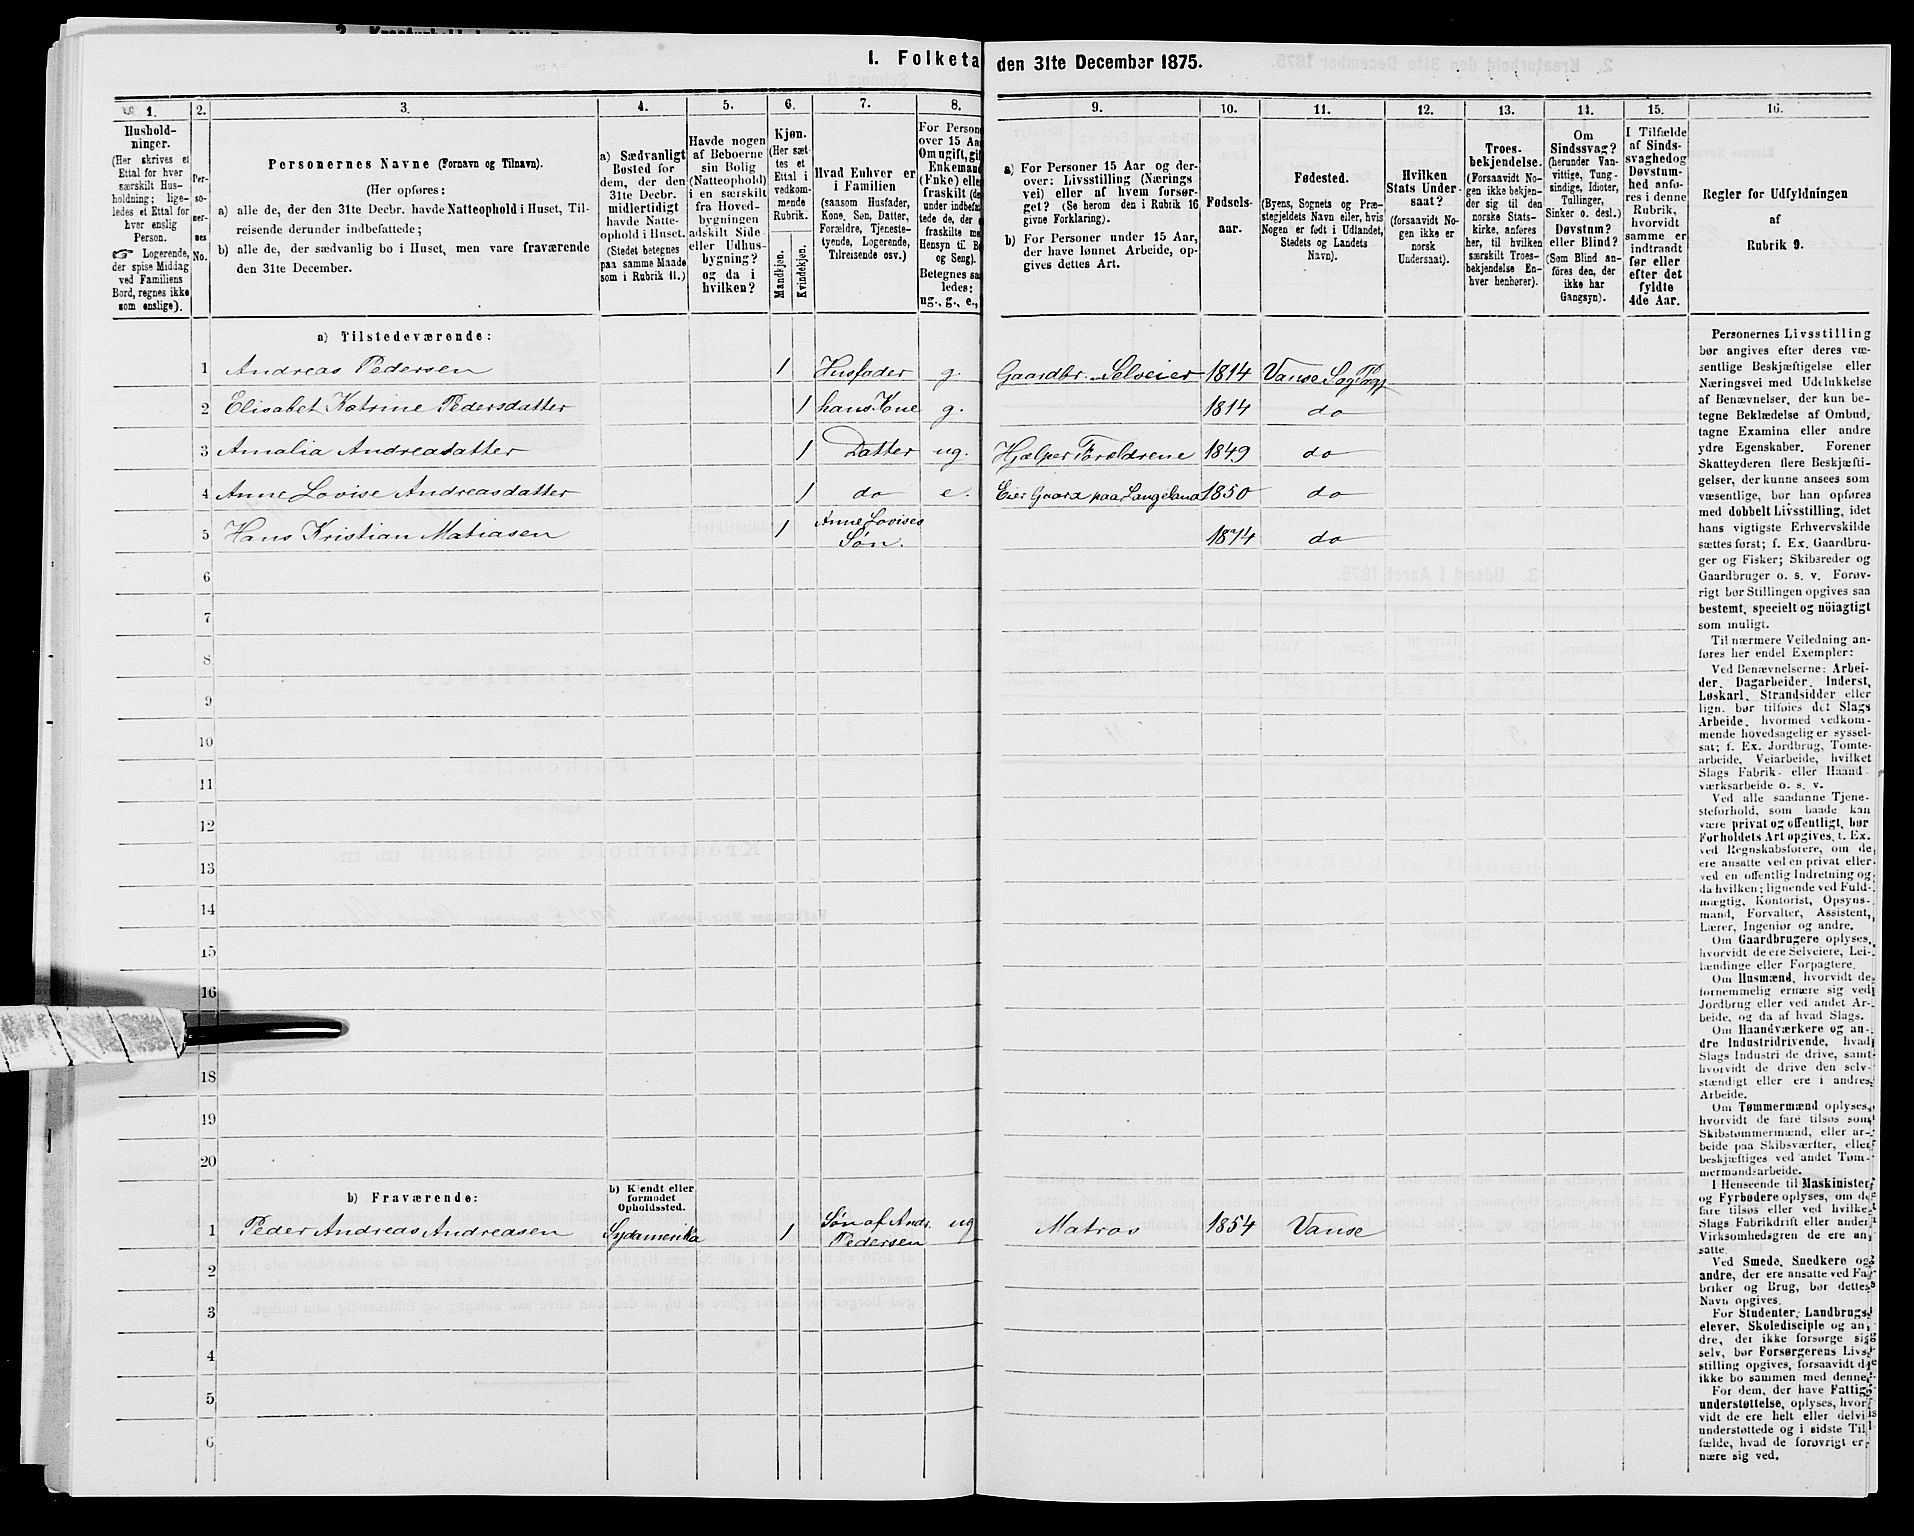 1. Folketa den 31te December 1875.
1. 2. 3. 4. 5. 6. 7. 8. 9. 10. 11. 12. 13. 14. 15. 16.
Hushold-
ninger.
(Her skrives et
Ettal for hver
særskilt Hus-
holdning; lige-
ledes et Ettal for
hver enslig
Person.
☞ Logerende,
der spise Middag
ved Familiens
Bord, regnes ikke
som enslige).
Per-
so-
ner-
nes
No.
Personernes Navne (Fornavn og Tilnavn).
(Her opføres:
a) alle de, der den 31te Decbr. havde Natteophold i Huset, Til-
reisende derunder indbefattede;
b) alle de, der sædvanlig bo i Huset, men vare fraværende
den 31te December.
a) Sædvanligt
Bosted for
dem, der den
31te Decbr.
midlertidigt
havde Natte-
ophold i Huset.
(Stedet betegnes
paa samme Maade
som i Rubrik 11.)
Havde nogen
af Beboerne
sin Bolig
(Natteophold)
i en særskilt
fra Hoved-
bygningen
adskilt Side-
eller Udhus-
bygning?
og da i
hvilken?
Kjøn.
(Her sæt-
tes et
Ettal i
vedkom-
mende
Rubrik.
Mandkjøn.
Kvindekjøn.
Hvad Enhver er
i Familien
(saasom Husfader,
Kone, Søn, Datter,
Forældre, Tjeneste-
tyende, Logerende,
Tilreisende osv.)
For Person
over 15 Aa
Om ugift, gif
Enkemand
(Enke) elle
fraskilt (de
under indbefat-
tede de, der e
fraskilte m
Hensyn til B
og Seng).
Betegnes sa
ledes:
ug., g., e.,
a) For Personer 15 Aar og der-
over: Livsstilling (Nærings
vei) eller af hvem forsør-
get? (Se herom den i Rubrik 16
givne Forklaring).
b) For Personer under 15 Aar,
der have lønnet Arbeide, op-
gives dettes Art.
Fødsels-
aar.
Fødested.
(Byens, Sognets og Præ-
stegjeldets Navn eller, hvis
Nogen er født i Udlandet,
Stedets og Landets
Navn).
Hvilken
Stats Under-
saat?
(forsaavidt No-
gen ikke er
norsk
Undersaat).
Troes-
bekjendelse.
(Forsaavidt No-
gen ikke bekjen-
der sig til den
norske Stats-
kirke, anføres
her, til hvilken
særskilt Troes-
bekjendelse En-
hver henhører).
Om
Sindssvag?
(herunder Van-
vittige, Tung-
sindige, Idioter,
Tullinger,
Sinker o. desl.)
Døvstum?
eller Blind?
(Som Blind an-
føres den, der
ikke har
Gangsyn).
I Tilfælde
af Sinds-
svaghed og
Døvstum-
hed anfø-
res i denne
Rubrik,
hvorvidt
samme er
indtraadt
før eller
efter det
fyldte
4de Aar.
Regler for Udfyldningen
af
Rubrik 9.
a) Tilstedeværende:
1 Andreas Pedersen 1 Husfader g. Gaardbr. Selveier 1814 Vanse
2 Elisabet Katrine Pedersdatter 1 hans Kone g. 1814 do
3 Amalia Andreasdatter 1 Datter ug. Hjælper Forældrene 1849 do
4 Anne Lovise Andreasdatter 1 do e. Eier Gaard paa Langeland 1850 do
5 Hans Kristian Matiasen 1 Anne Lovises
Søn. 1874 do
6
7
8
9
10
11
12
13
14
15
16
18
19
20
b) Fraværende:
b) Kjendt eller
formodet
Opholdssted.
1 Peder Andreas Andreasen Sydamerika 1 Søn af Andr.
Pedersen ug Matros 1854 Vanse
2
3
4
5
6
Personernes Livsstilling
bør angives efter deres væ-
sentlige Beskjæftigelse eller
Næringsvei med Udelukkelse
af Benævnelser, der kun be-
tegne Beklædelse af Ombud,
tagne Examina eller andre
ydre Egenskaber. Forener
Skatteyderen flere Beskjæfti-
gelser, der kunne ansees som
væsentlige, bør han opføres
med dobbelt Livsstilling, idet
hans vigtigste Erhvervskilde
sættes først; f. Ex. Gaardbru-
ger og Fisker; Skibsreder og
Gaardbruger o. s. v. Forøv-
rigt bør Stillingen opgives saa
bestemt, specielt og nöiagtigt
som muligt.
Til nærmere Veiledning an-
føres her endel Exempler:
Ved Benævnelserne: Arbei-
der, Dagarbeider, Inderst,
Løskarl, Strandsidder eller
lign. bør tilføies det Slags
Arbeide, hvormed vedkom-
mende hovedsagelig er syssel-
sat; f. Ex. Jordbrug, Tomte-
arbeide, Veiarbeide, hvilket
Slags Fabrik- eller Haand-
værksarbeide o. s. v.
Ved alle saadanne Tjene-
steforhold, som baade kan
være privat og offentligt, bør
Forholdets Art opgives, t. Ex.
ved Regnskabsførere, om de
ere ansatte ved en privat eller
ved en offentlig Indretning og
da hvilken; lignende ved Fuld-
mægtig, Kontorist, Opsyns-
mand, Forvalter, Assistent,
Lærer, Ingeniør og andre.
Om Gaardbrugere oplyses,
hvorvidt de ere Selveiere, Lei-
lændinge eller Forpagtere.
Om Husmænd, hvorvidt de
fornemmelig ernære sig ved
Jordbrug eller ved andet Ar-
beide, og da af hvad Slags.
Om Haandværkere og an-
dre Industridrivende, hvad
Slags Industri de drive, samt
hvorvidt de drive den selv-
stændigt eller ere i andres
Arbeide.
Om Tømmermænd oplyses,
hvorvidt de fare tilsøs som
Skibstømmermænd, eller ar-
beide paa Skibsværfter, eller
beskjæftiges ved andet Tøm-
mermandsarbeide.
I Henseende til Maskinister
og Fyrbødere oplyses, om de
fare tilsøs eller ved hvilket
Slags Fabrikdrift eller anden
Virksomhedsgren de ere an-
satte.
Ved Smede, Snedkere og
andre, der ere ansatte ved Fa-
briker og Brug, bør dettes
Navn opgives.
For Studenter, Landbrugs-
elever, Skoledisciple og an-
dre, der ikke forsørge sig
selv, bør Forsørgerens Livs-
stilling opgives, forsaavidt de
ikke bo sammen med denne.
For dem, der have Fattig-
understøttelse, oplyses, hvor-
vidt de ere helt eller delvis
understøttede og i sidste Til-
fælde, hvad de forøvrigt er-
nære sig ved.